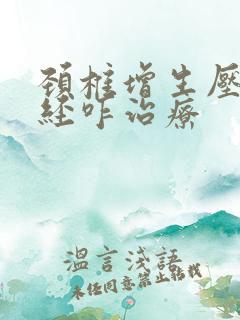 頚椎增生壓
経咋治療
溫言淺語
未经同意禁止转载